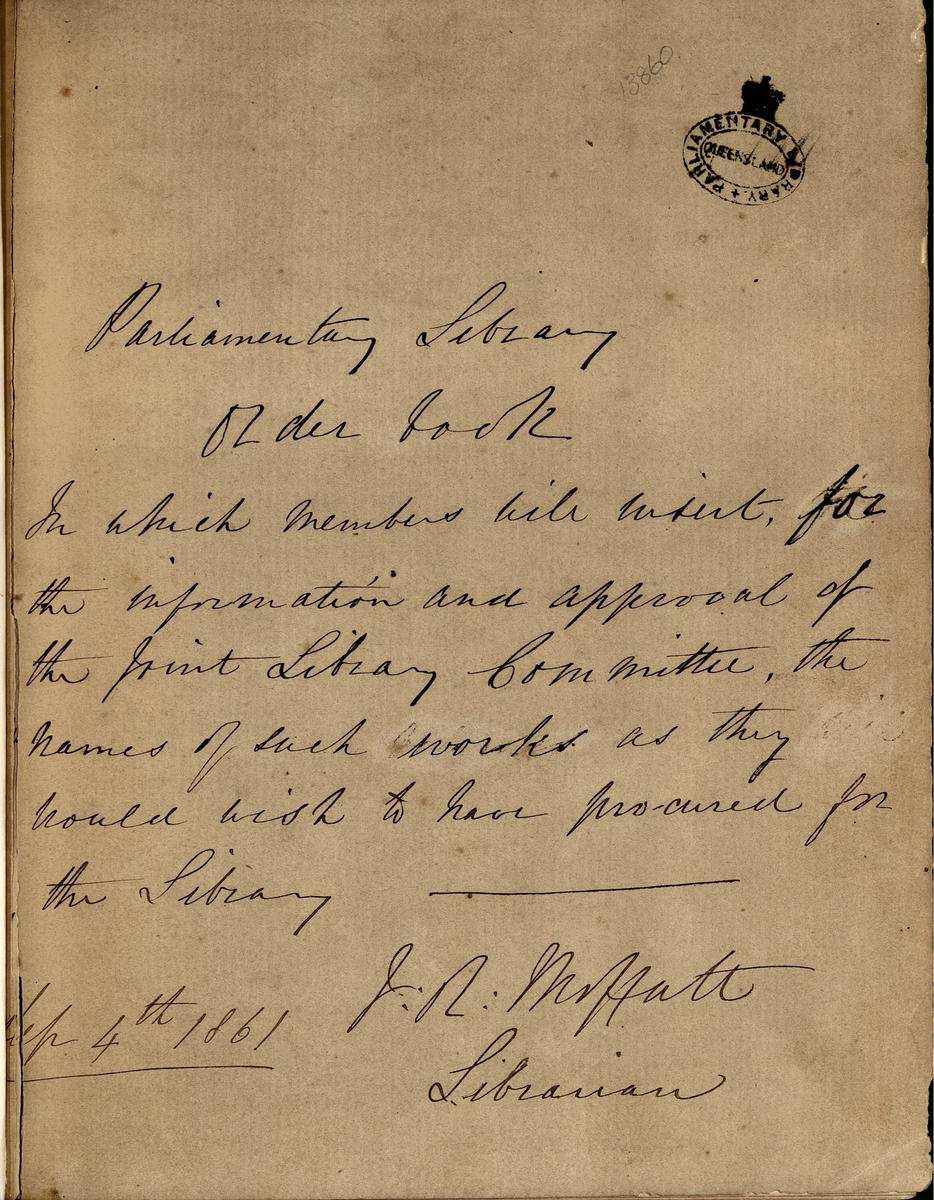 13860
PARLIAMENTARY LIBRARY +
QUEENSLAND
Parliamentary Library
Order book
In which members will insert, for
the information and approval of
the Joint Library Committee, the
names of such works as they
would wish to have procured for
the Library
J. R. Moffatt
Sep 4th 1861
Librarian